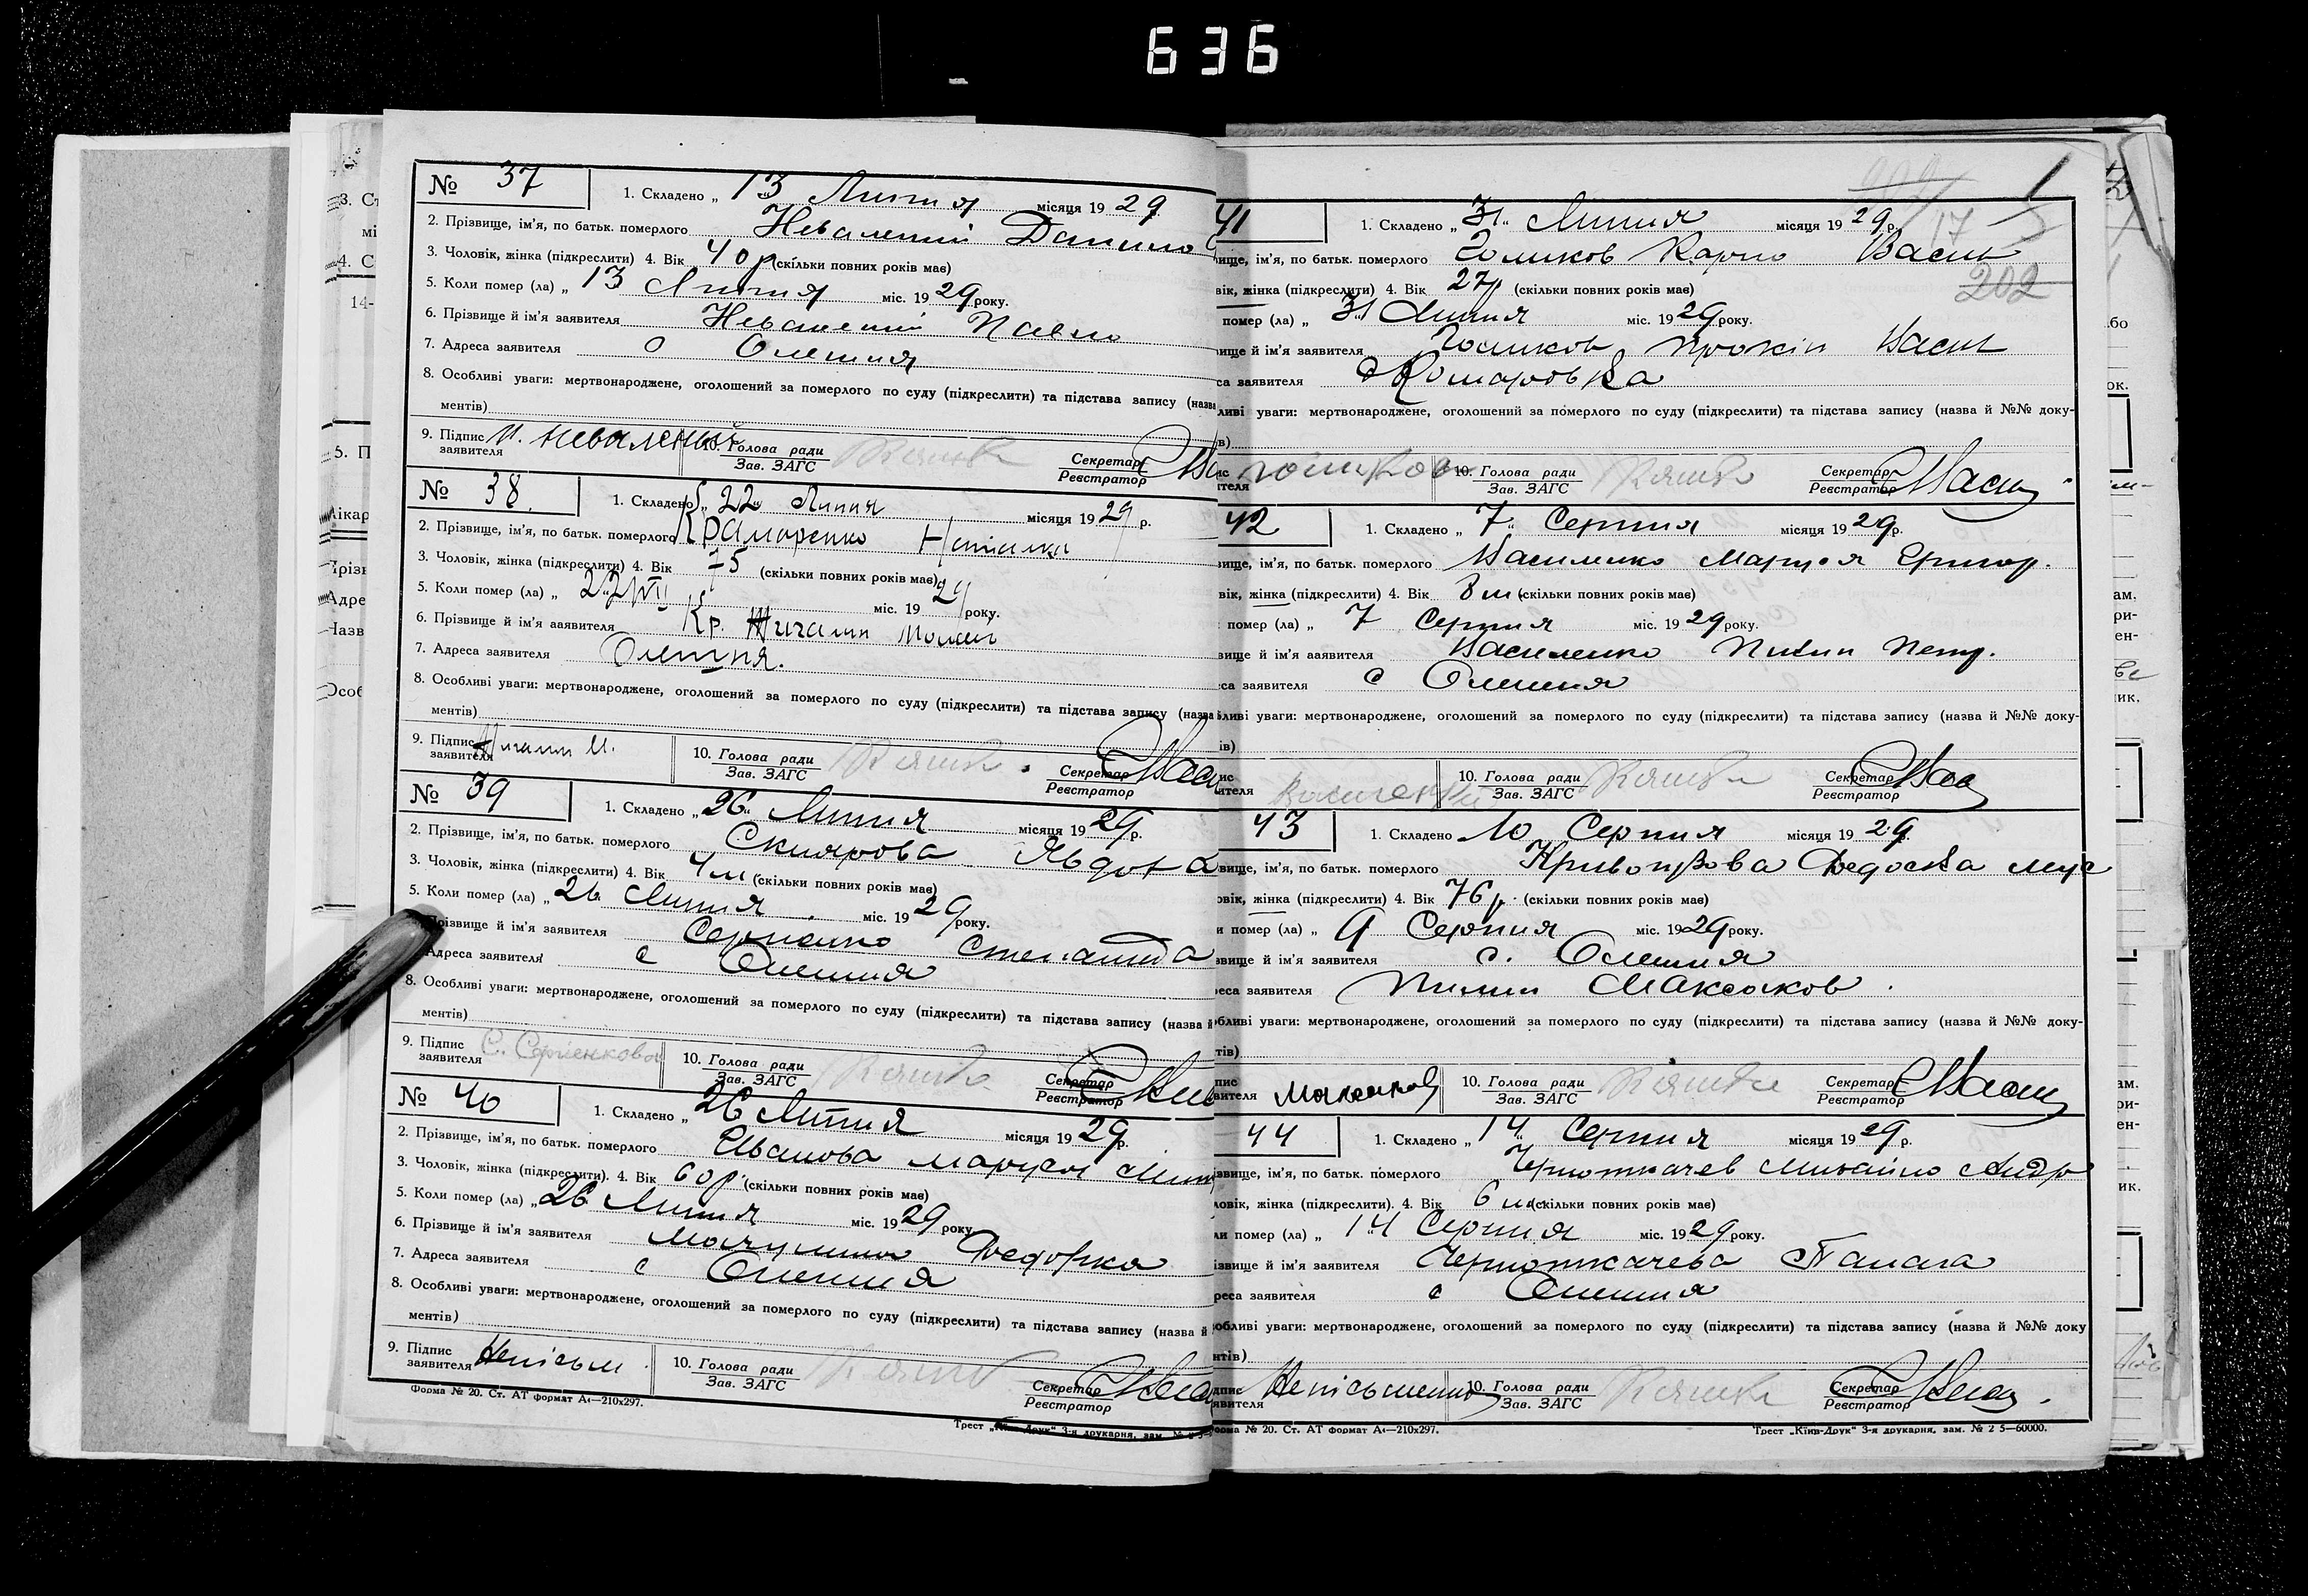 636
№ 37
1. Складено „ 13 Липня місяця 19 29
2. Прізвище, ім'я, по батьк. померлого Невалений Данило
3. Чоловік, жінка (підкреслити) 4. Вік 40 р (скільки повних років має)
5. Коли помер (ла) „ 13 Липня міс. 19 29 року.
6. Прізвище й ім'я заявителя Невалений Павло
7. Адреса заявителя с Олешня
8. Особливі уваги: мертвонароджене, оголошений за померлого по суду (підкреслити) та підстава запису (назва
ментів)
9. Підпис заявителя П. Невалений 10. Голова ради Зав. ЗАГС Секретар Реєстратор
№ 38
1. Складено „ 22 Липня місяця 19 29 р.
2. Прізвище, ім'я, по батьк. померлого Крамаренко Наталка
3. Чоловік, жінка (підкреслити) 4. Вік 75 (скільки повних років має)
5. Коли помер (ла) „ 22 VII міс. 19 29 року.
6. Прізвище й ім'я заявителя Кр.
7. Адреса заявителя Олешня.
8. Особливі уваги: мертвонароджене, оголошений за померлого по суду (підкреслити) та підстава запису (назва
ментів)
9. Підпис заявителя 10. Голова ради Зав. ЗАГС Секретар Реєстратор
№ 39
1. Складено „ 26 Липня місяця 19 29 р.
2. Прізвище, ім'я, по батьк. померлого Склярова Явдоха
3. Чоловік, жінка (підкреслити) 4. Вік 4 м (скільки повних років має)
5. Коли помер (ла) „ 26 Липня міс. 19 29 року.
Прізвище й ім'я заявителя Сергієнко Степанида
Адреса заявителя с Олешня
8. Особливі уваги: мертвонароджене, оголошений за померлого по суду (підкреслити) та підстава запису (назва й
ментів)
9. Підпис заявителя С. Сергіенкова 10. Голова ради Зав. ЗАГС Секретар Реєстратор
№ 40
1. Складено „ 26 Липня місяця 19 29 р.
2. Прізвище, ім'я, по батьк. померлого Иванова Марфа
3. Чоловік, жінка (підкреслити). 4. Вік 60 р. (скільки повних років має)
5. Коли помер (ла) „ 26 Липня міс. 19 29 року
6. Прізвище й ім'я заявителя Федорка
7. Адреса заявителя с Олешня
8. Особливі уваги: мертвонароджене, оголошений за померлого по суду (підкреслити) та підстава запису (назва й
ментів)
9. Підпис заявителя Непісьм. 10. Голова ради Зав. ЗАГС Секретар Реєстратор
Форма № 20. Ст. АТ формат А4—210х297.
Трест „Київ-Друк" 3-я друкарня, зам. №
17
202
41
1. Складено „ 31 " Липня місяця 19 29 р.
ище, ім'я, по батьк. померлого Голиков Карпо Васил
вік, жінка (підкреслити) 4. Вік 27 р (скільки повних років має)
помер (ла) „ 31 Липня міс. 19 29 року.
ище й ім'я заявителя Голиков Прокіп Васил
са заявителя с Комаровка
ливі уваги: мертвонароджене, оголошений за померлого по суду (підкреслити) та підстава запису (назва й №№ доку-
в)
Голиков 10. Голова ради Зав. ЗАГС Секретар Реєстратор
42
1. Складено „ 7 " Серпня місяця 19 29 р.
вище, ім'я, по батьк. померлого Василенко Марфа Григор.
вік, жінка (підкреслити) 4. Вік 8 м (скільки повних років має)
помер (ла) „ 7 Серпня міс. 19 29 року.
вище й ім'я заявителя Василенко Пилип Петр.
са заявителя с Олешня
ливі уваги: мертвонароджене, оголошений за померлого по суду (підкреслити) та підстава запису (назва й №№ доку-
ів)
Василенко 10. Голова ради Зав. ЗАГС Секретар Реєстратор
43
1. Складено 10 Серпня місяця 19 29
вище, ім'я, по батьк. померлого Федоска Мус
овік, жінка (підкреслити) 4. Вік 76 р. (скільки повних років має)
и помер (ла) „ 9 Серпня міс. 19 29 року.
звище й ім'я заявителя с. Олешня
реса заявителя Пилип Максаков.
обливі уваги: мертвонароджене, оголошений за померлого по суду (підкреслити) та підстава запису (назва й №№ доку-
тів)
Максаков 10. Голова ради Зав. ЗАГС Секретар Реєстратор
44
1. Складено „ 14 " Серпня місяця 19 29 р.
звище, ім'я, по батьк. померлого Чорноткачев Михайло Андр
ловік, жінка (підкреслити). 4. Вік 6 м (скільки повних років має)
ли помер (ла) „ 14 Серпня міс. 19 29 року.
ізвище й ім'я заявителя Чорноткачева
реса заявителя с Олешня
обливі уваги: мертвонароджене, оголошений за померлого по суду (підкреслити) та підстава запису (назва й №№ доку
нтів)
Непісьменна 10. Голова ради Зав. ЗАГС Секретар Реєстратор
орма № 20. Ст. АТ формат А4—210х297.
Трест „Київ-Друк" 3-я друкарня, зам. № 2 5—60000.